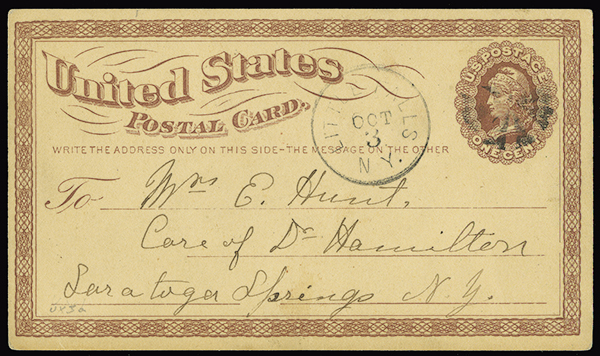 United States
Postal Card.
WRITE THE ADDRESS ONLY ON THIS SIDE-THE MESSAGE ON THE OTHER
U.S. POSTAGE
ONE CENT
OCT
3
N.Y.
To Mrs E. Hunt,
Care of Dr Hamilton
Saratoga Springs N.Y.
UX3a